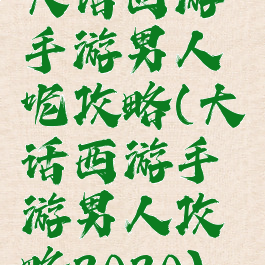 大话西游
手游男人
呢攻略(大
话西游手
游男人攻
略2020)